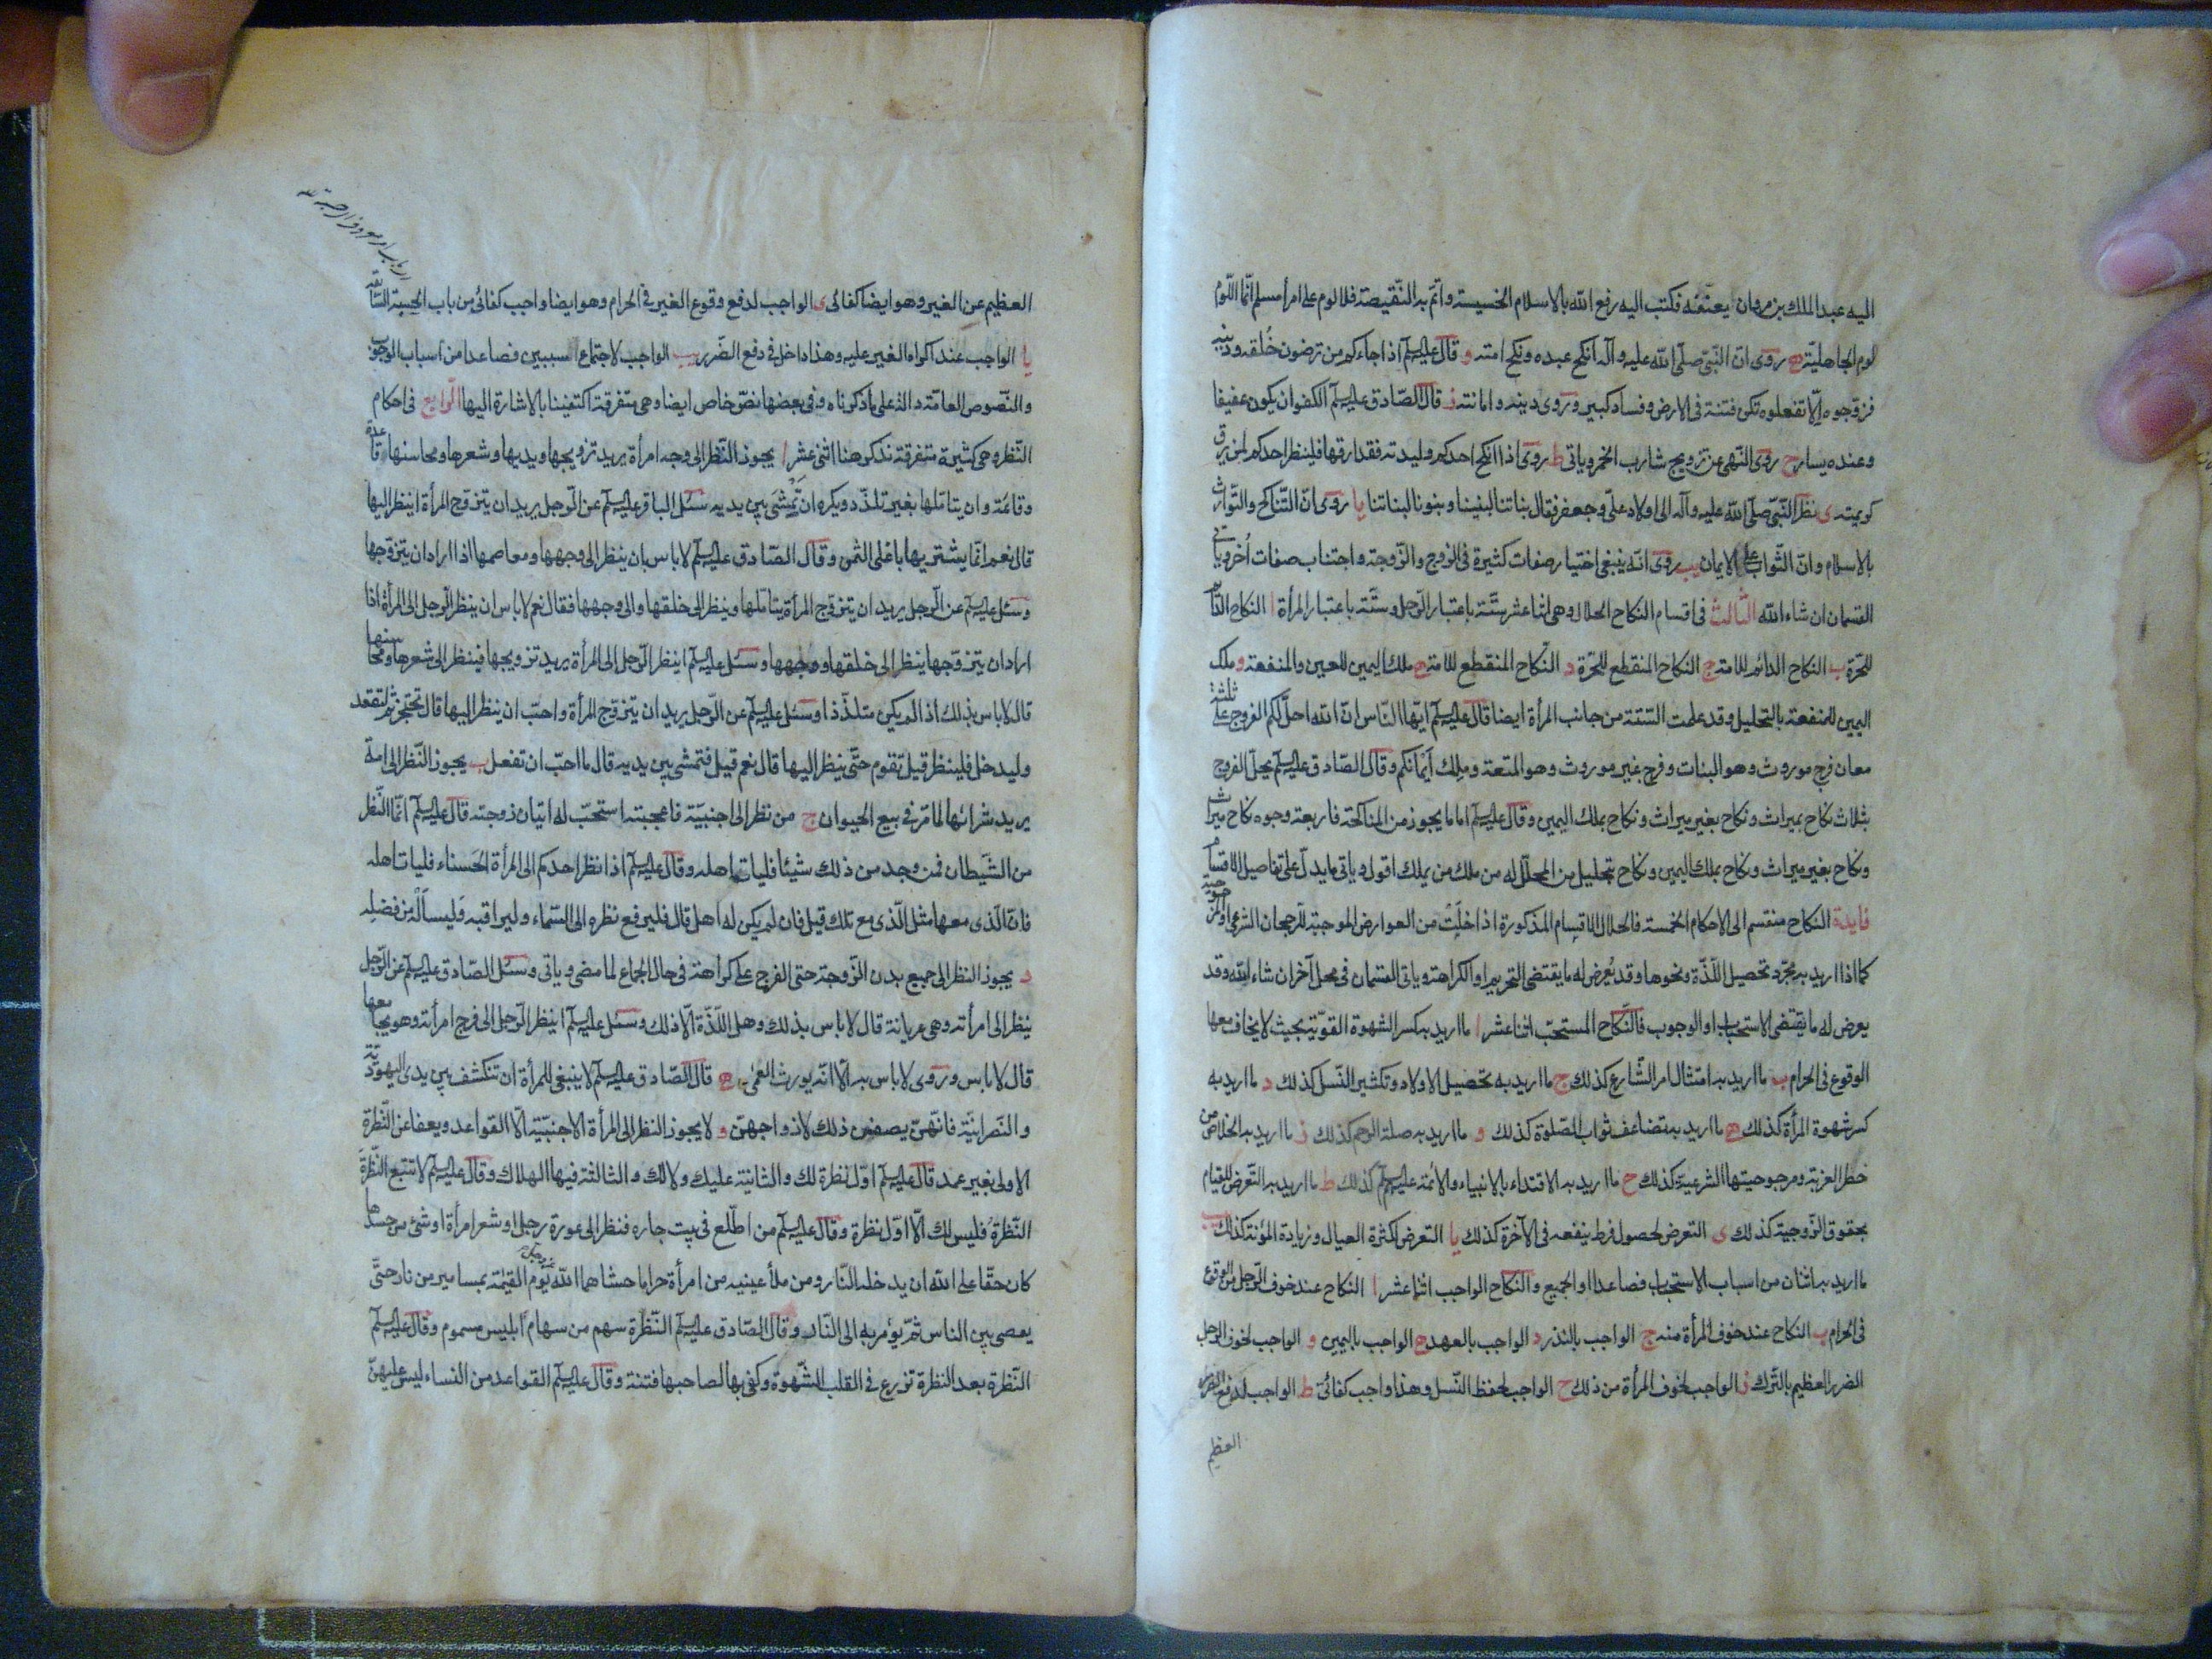 اليه عبد الملك بن مروان يعنّفه فكتب اليه رفع الله بالاسلام الخسيسة واتم به النّقيصة فلا لوم على امرأ مسلم انّما اللّوم
لوم الجاهليّة ه روى انّ النّبيّ صلّى الله عليه وآله انكح عبده ونكح امته و قال عليه السلم اذا جاءكم من ترضون خُلقه ودينه
فزوّجوه اِلّا تفعلوه تكن فتنة فى الارض وفساد كبير وروى دينه وامانته ز قال الصّادق عليه السلم الكفو ان يكون عفيفا
وعنده يسار ح روى النّهى عن تزويج شارب الخمر وياتى ط روى اذا انكح احدكم وليدته فقد ارقها فلينظر احدكم لمن يرق
كريمته ى نظر النّبيّ صلّى الله عليه وآله الى اولاد علىّ وجعفر فقال بناتنا لبنينا وبنونا لبناتنا يا روى انّ التّناكح والتّوارث
بالاسلام وانّ الثّواب على الايمان يب روى انّه ينبغى اختيار صفات كثيرة فى الزوج والزّوجة واجتناب صفات اُخر وياتى
القسمان ان شاء الله الثّالث فى اقسام النكاح الحلال وهى اثنا عشر ستّة باعتبار الرّجل وستّة باعتبار المرأة ا النكاح الدّائم
للحرّة ب النكاح الدائم للامة ج النكاح المنقطع للحرّة د النكاح المنقطع للامة ه ملك اليمين للعين والمنفعة و ملك
اليمين للمنفعة بالتحليل وقد علمت الستّة من جانب المرأة ايضا قال عليه السلم ايّها النّاس انّ الله احلّ لكم الفروج على ثلثة
معان فرج موروث وهو البنات وفرج غير موروث وهو المتعة وملك اَيمانكم وقال الصّادق عليه السلم يحلّ الفرج
بثلاث نكاح بميراث ونكاح بغير ميراث ونكاح بملك اليمين وقال عليه السلم اما ما يجوز من المناكحة فاربعة وجوه نكاح ميراث
ونكاح بغير ميراث ونكاح بملك اليمين ونكاح بتحليل من المحلّل له من ملك من يملك اقول وياتى ما يدلّ على تفاصيل الاقسام
فايدة النكاح منقسم الى الاحكام الخمسة فالحلال الاقسام المذكورة اذا خلت من العوارض الموجبة للرّجحان الشرعى او المرجوحية
كما اذا اريد به مجرّد تحصيل اللّذّة ونحوها وقد يُعرض له ما يقتضى التحريم او الكراهة وياتى القسمان فى محل آخر ان شاء الله وقد
يعرض له ما يقتضى الاستحباب او الوجوب فالنّكاح المستحبّ اثنا عشر ا ما اريد به كسر الشهوة القويّة بحيث لا يخاف معها
الوقوع فى الحرام ب ما اريد به امتثال امر الشّارع كذلك ج ما اريد به تحصيل الاولاد وتكثير النّسل كذلك د ما اريد به
كسر شهوة المرأة كذلك ه ما اريد به تضاعف ثواب الصّلوة كذلك و ما اريد به صلة الرحم كذلك ز ما اريد به الخلاص من
خطر العزبة ومرجوحيتها الشرعيّة كذلك ح ما اريد به الاقتداء بالانبياء والائمة عليهم السلم كذلك ط ما اريد به التّعرض للقيام
بحقوق الزّوجية كذلك ى التعرض لحصول فرط ينفعه فى الآخرة كذلك يا التعرض لكثرة العيال وزيادة المؤنة كذلك يب
ما اريد به اثنان من اسباب الاستحباب فصاعدا او الجميع والنّكاح الواجب اثنا عشر ا النكاح عند خوف الرّجل من الوقوع
فى الحرام ب النكاح عند خوف المرأة منه ج الواجب بالنذر د الواجب بالعهد ه الواجب باليمين و الواجب لخوف الرجل
الضرر العظيم بالتّرك ز الواجب لخوف المرأة من ذلك ح الواجب لحفظ النّسل وهذا واجب كفائى ط الواجب لدفع الضرر
العظيم
العظيم عن الغير وهو ايضا كفائى ى الواجب لدفع وقوع الغير فى الحرام وهو ايضا واجب كفائى من باب الحسبة السّابقة
يا الواجب عند اكراه الغير عليه وهذا داخل فى دفع الضّرر يب الواجب لاجتماع سببين فصاعدا من اسباب الوجوب
والنّصوص العامّة دالّة على ما ذكرناه وفى بعضها نصّ خاص ايضا وهى متفرقة اكتفينا بالاشارة اليها الرّابع فى احكام
النّظر وهى كثيرة متفرقة نذكر هنا اثنى عشر ا يجوز النّظر الى وجه امرأة يريد تزويجها ويديها وشعرها ومحاسنها قاعدة
وقائمة وان يتامّلها بغير تلذّذ ويكره ان تمشى بين يديه سئل الباقر عليه السلم عن الرّجل يريد ان يتزوّج المرأة اينظر اليها
قال نعم انّما يشتريها باغلى الثمن وقال الصّادق عليه السلم لا باس بان ينظر الى وجهها ومعاصمها اذا اراد ان يتزوّجها
وسئل عليه السلم عن الرّجل يريد ان يتزوّج المرأة يتامّلها وينظر الى خلفها والى وجهها فقال نعم لا باس ان ينظر الرّجل الى المرأة اذا
اراد ان يتزوّجها ينظر الى خلفها ووجهها وسئل عليه السلم اينظر الرّجل الى المرأة يريد تزويجها فينظر الى شعرها ومحاسنها
قال لا باس بذلك اذا لم يكن متلذّذا وسئل عليه السلم عن الرّجل يريد ان يتزوّج المرأة واحبّ ان ينظر اليها قال تحتجز ثم لتقعد
وليدخل فلينظر قيل تقوم حتّى ينظر اليها قال نعم قيل فتمشى بين يديه قال ما احبّ ان تفعل ب يجوز النّظر الى امة
يريد شرائها لما مرّ فى بيع الحيوان ج من نظر الى اجنبيّة فاعجبته استحبّ له اتيان زوجته قال عليه السلم انّما النّظر
من الشّيطان فمن وجد من ذلك شيئا فليات اهله وقال عليه السلم اذا نظر احدكم الى المرأة الحسناء فليات اهله
فانّ الّذى معها مثل الّذى مع تلك قيل فان لم يكن له اهل قال فليرفع نظره الى السّماء وليراقبه وليسأله من فضله
د يجوز النظر الى جميع بدن الزّوجة حتى الفرج على كراهة فى حال الجماع لما مضى وياتى وسئل الصّادق عليه السلم عن الرّجل
ينظر الى امرأته وهى عريانة قال لا باس بذلك وهل اللّذّة الّا ذلك وسئل عليه السلم اينظر الرّجل الى فرج امرأته وهو يجامعها
قال لا باس وروى لا باس به الّا انّه يورث العمى ه قال الصّادق عليه السلم لا ينبغى للمرأة ان تنكشف بين يدى اليهوديّة
والنّصرانيّة فانّهنّ يصفن ذلك لازواجهنّ و لا يجوز النظر الى المرأة الاجنبيّة الّا القواعد ويعفا عن النّظرة
الاولى بغير عمد قال عليه السلم اوّل نظرة لك والثانية عليك ولا لك والثالثة فيها الهلاك وقال عليه السلم لا تتبع النّظرة
النّظرة فليس لك الّا اوّل نظرة وقال عليه السلم من اطّلع فى بيت جاره فنظر الى عورة رجل او شعر امرأة او شئ من جسدها
كان حقّا على الله ان يدخله النّار ومن ملأ عينيه من امرأة حراما حشاهما الله عزّ وجلّ يوم القيمة بمسامير من نار حتّى
يقضى بين الناس ثمّ يؤمر به الى النّار وقال الصّادق عليه السلم النّظرة سهم من سهام ابليس مسموم وقال عليه السلم
النّظرة بعد النظرة تزرع فى القلب الشّهوة وكفى بها لصاحبها فتنة وقال عليه السلم القواعد من النساء ليس عليهنّ